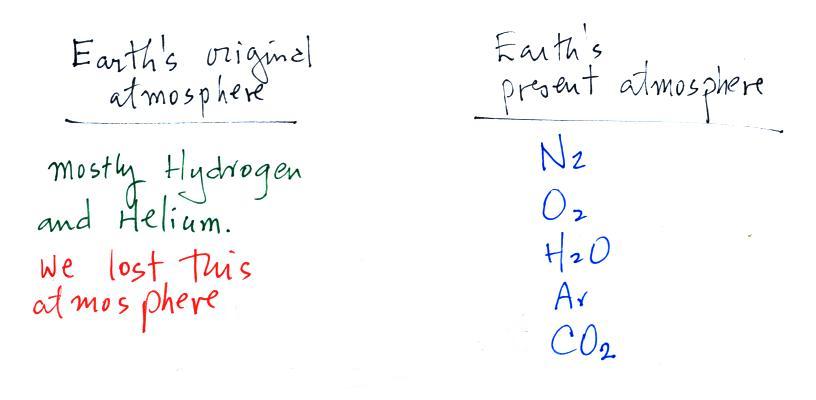 Earth's original
atmosphere
mostly Hydrogen
and Helium.
We lost this
atmosphere
Earth's
present atmosphere
N2
O2
H2O
Ar
CO2